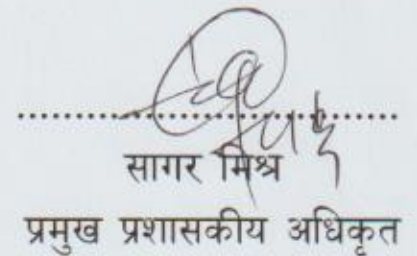 सागर मिश्र
प्रमुख प्रशासकीय अधिकृत